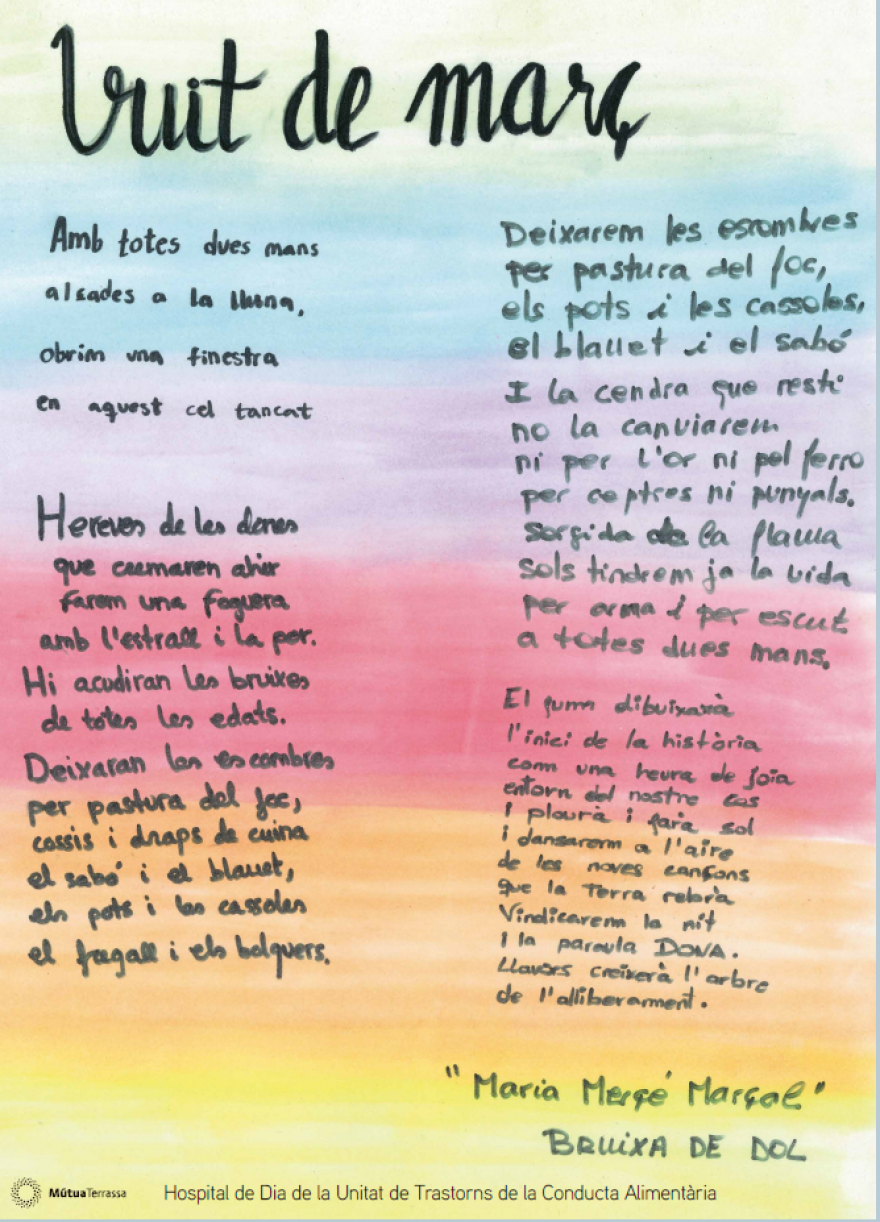 Vuit de març
Amb totes dues mans
alçades a la lluna,
obrim una finestra
en aquest cel tancat
Hereves de les dones
que cremaren ahir
farem una foguera
amb l'estrall i la por.
Hi acudiran les bruixes
de totes les edats.
Deixaran les escombres
per pastura del foc,
cossis i draps de cuina
el sabó i el blauet,
els pots i les cassoles
el fregall i els bolquers.
Deixarem les escombres
per pastura del foc,
els pots i les cassoles,
el blauet i el sabó
I la cendra que resti
no la canviarem
ni per l'or ni pel ferro
per ceptres ni punyals.
Sorgida de la flama
sols tindrem ja la vida
per arma i per escut
a totes dues mans.
El fum dibuixarà
l'inici de la història
com una heura de joia
entorn del nostre cos
i plourà i farà sol
i dansarem a l'aire
de les noves cançons
que la Terra rebrà
Vindicarem la nit
i la paraula DONA.
Llavors creixerà l'arbre
de l'alliberament.
"Maria Mercé Marçal"
BRUIXA DE DOL
MútuaTerrassa
Hospital de Dia de la Unitat de Trastorns de la Conducta Alimentària